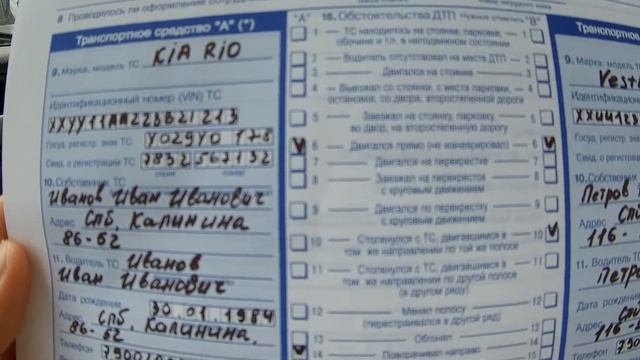 8 Проводилось ли оформление сотрудн
Транспортное средство "А" (*)
9. Марка, модель ТС KiA RiO
Идентификационный номер (VIN) ТС
XXYY11AA22BB21213
Госуд. регистр. знак ТС У029УО 178
Свид. о регистрации ТС 7832 567132
серия номер
10. Собственник ТС
Иванов Иван Иванович
Адрес СПб, Калинина
86-62
11. Водитель ТС Иванов
Иван Иванович
Дата рождения 30.01.1984
Адрес СПб, Калинина,
86-62
Телефон 7900
"А" 16. Обстоятельства ДТП Нужное отметить "В"
1 ТС находилось на стоянке, парковке, обочине и т.п. в неподвижном состоянии 1
2 Водитель отсутствовал на месте ДТП 2
3 Двигался на стоянке 3
4 Выезжал со стоянки, с места парковки, остановки, со двора, второстепенной дороги 4
5 Заезжал на стоянку, парковку, во двор, на второстепенную дорогу 5
V 6 Двигался прямо (не маневрировал) 6 V
7 Двигался на перекрестке 7
8 Заезжал на перекресток с круговым движением 8
9 Двигался по перекрестку с круговым движением 9
10 Столкнулся с ТС, двигавшимся в том же направлении по той же полосе 10 V
11 Столкнулся с ТС, двигавшимся в том же направлении по другой полосе (в другом ряду) 11
12 Менял полосу (перестраивался в другой ряд) 12
13 Обгонял 13
V 14 Поворачивал направо 14
Транспортное
9. Марка,
Vest
Идентификаци
Госуд. регистр.
Свид. о регистра
10. Собственник
Петров
Адрес СП
116-
11. Водитель
Петр
Дата рожден
Адрес СП
116-
Телефон